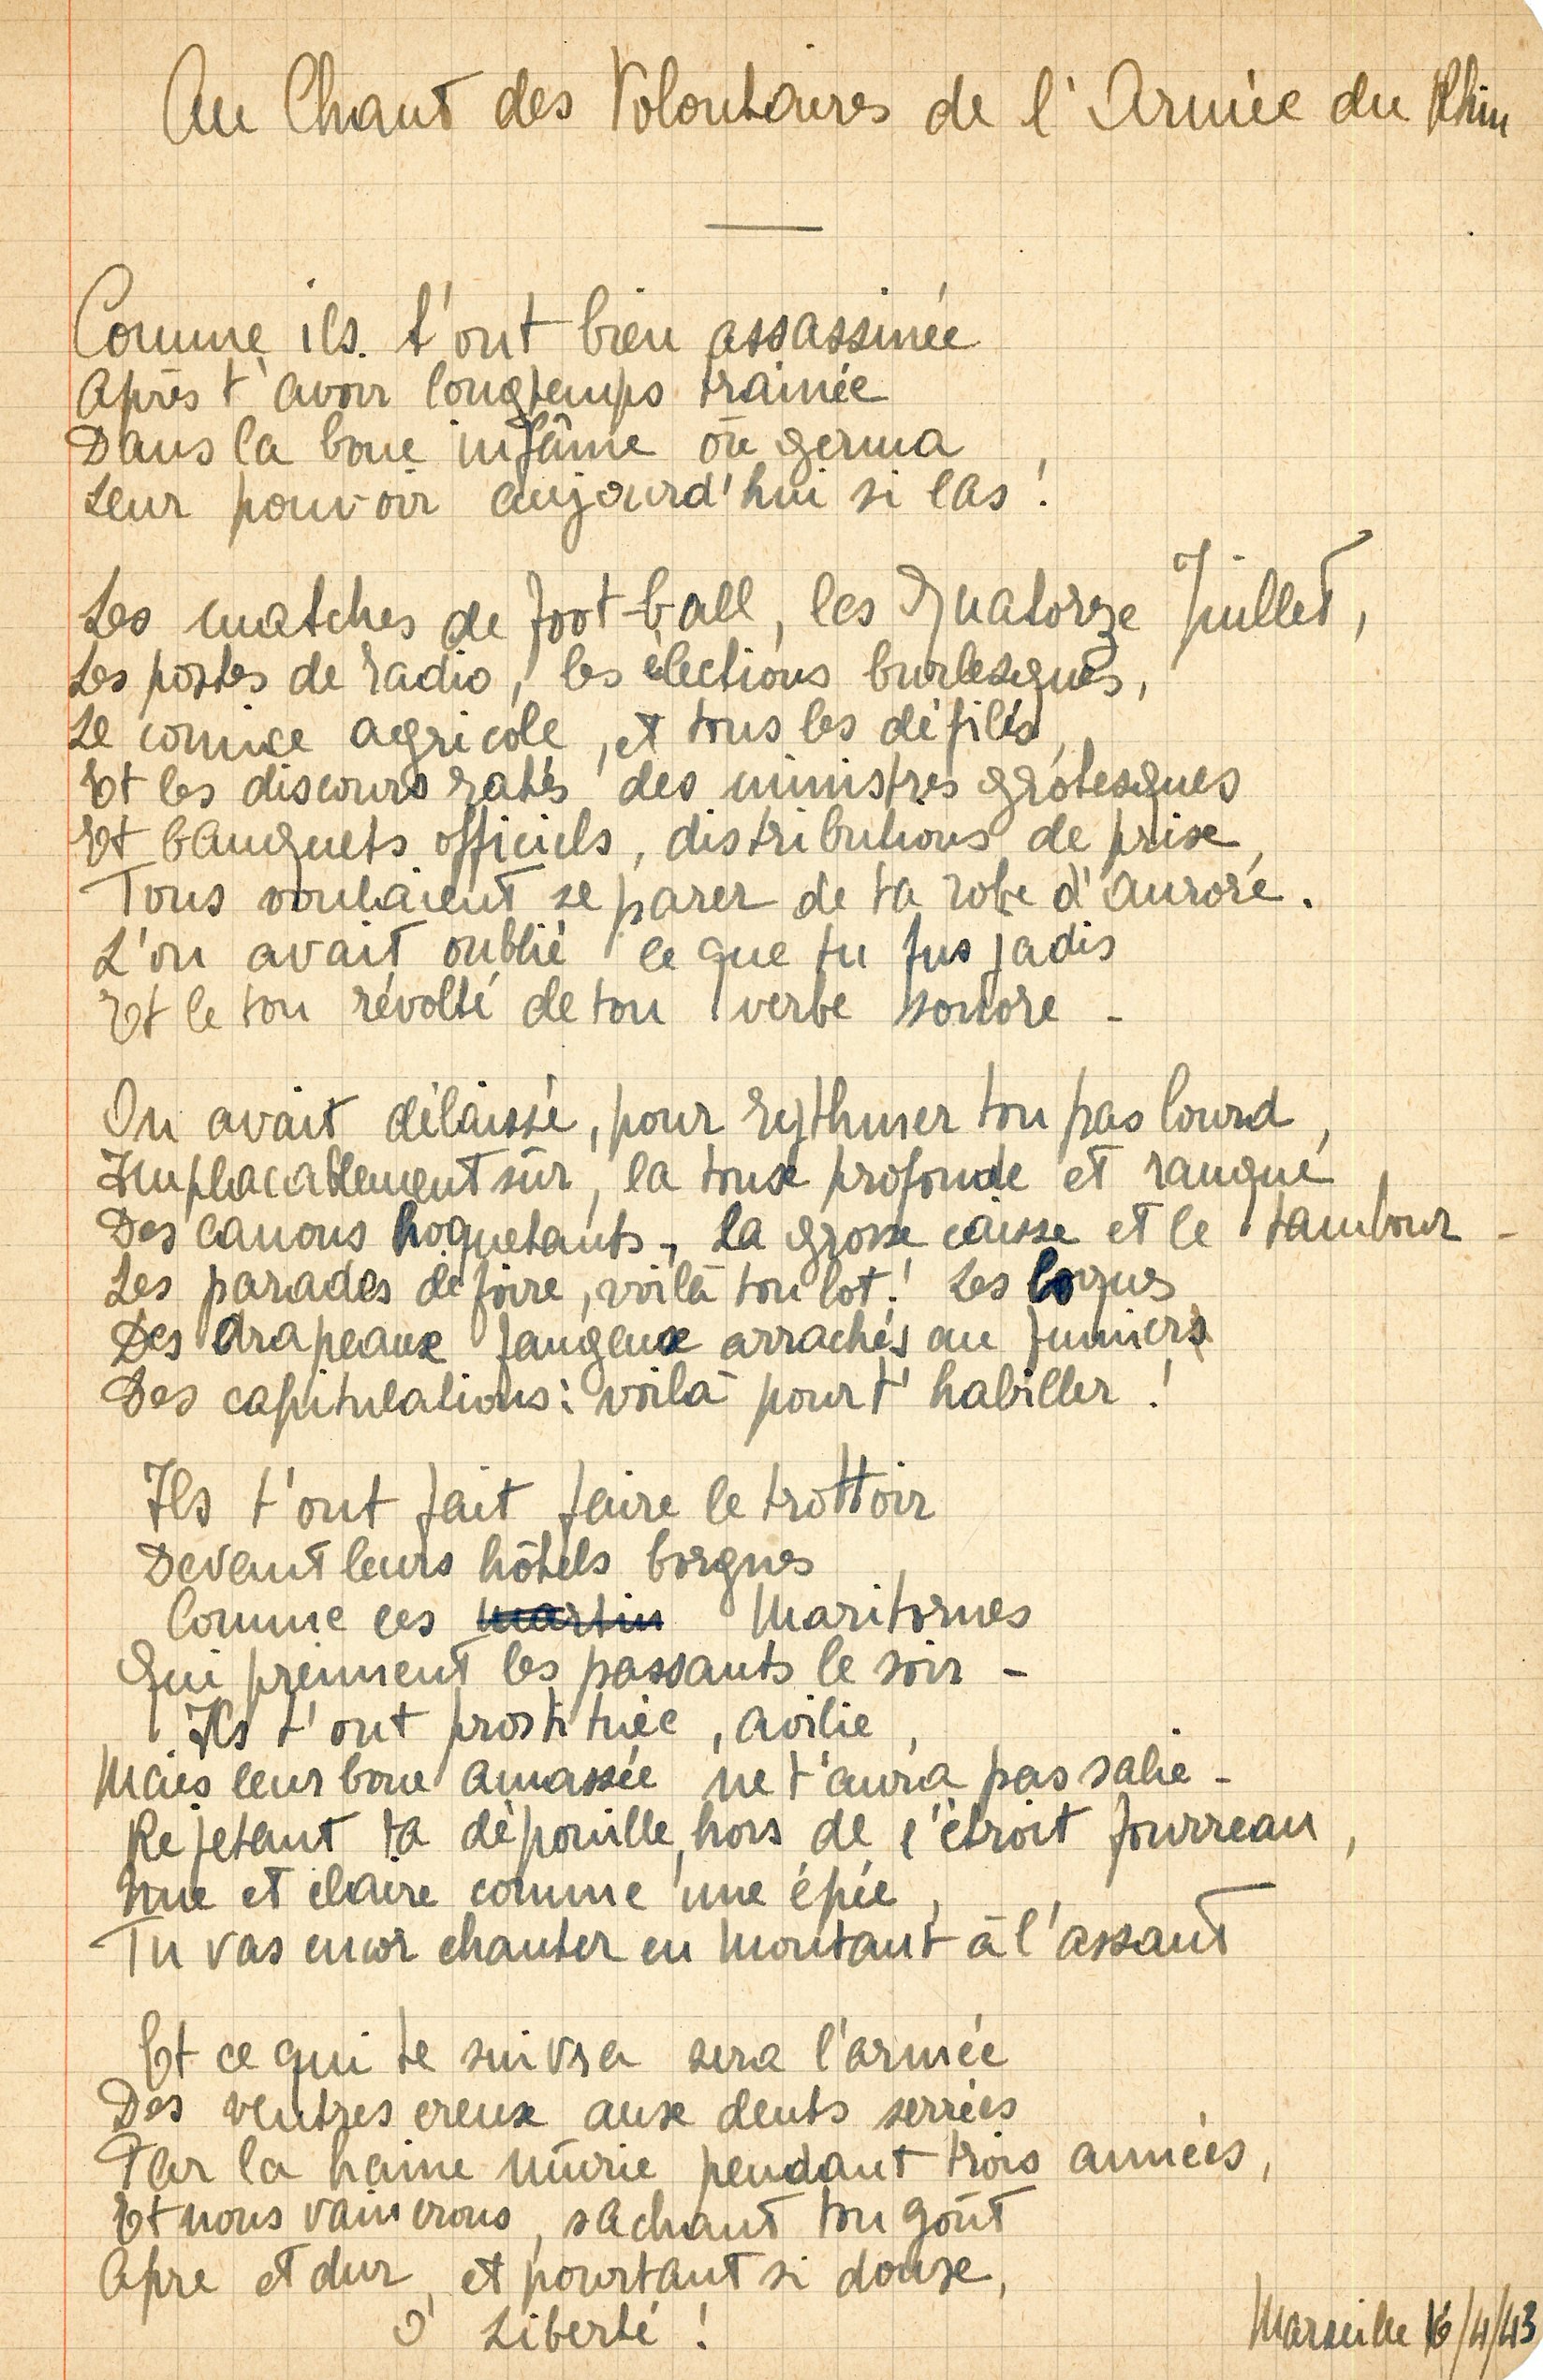 Au Chant des Volontaires de l'Armée du Rhin
Comme ils t'ont bien assassinée
Après t'avoir longtemps trainée
Dans la boue infâme où germa
Leur pouvoir aujourd'hui si las !
Les matches de foot-ball, les Quatorze Juillet,
Les postes de radio, les élections burlesques,
Le comice agricole, et tous les défilés,
Et les discours ratés des ministres grotesques
Et banquets officiels, distributions de prix,
Tous voulaient se parer de ta robe d'aurore.
L'on avait oublié ce que tu fus jadis
Et le ton révolté de ton verbe sonore -
On avait délaissé, pour rythmer ton pas lourd,
Implacablement sûr, la toux profonde et rauque
Des canons hoquetants, la grosse caisse et le tambour -
Les parades de foire, voilà ton lot ! Les loques
Des drapeaux fangeux arrachés au fumiers
Des capitulations : voilà pour t'habiller !
Ils t'ont fait faire le trottoir
Devant leurs hôtels borgnes
Comme ces martin Maritornes
Qui prennent les passants le soir -
Ils t'ont prostituée, avilie,
Mais leur boue amassée ne t'aura pas salie -
Rejetant ta dépouille, hors de l'étroit fourreau,
Nue et claire comme une épée,
Tu vas encor chanter en montant à l'assaut
Et ce qui te suivra sera l'armée
Des ventres creux aux dents serrées
Par la haine mûrie pendant trois années,
Et nous vaincrons, sachant ton goût
Apre et dur, et pourtant si doux,
O Liberté !
Marseille 16/4/43